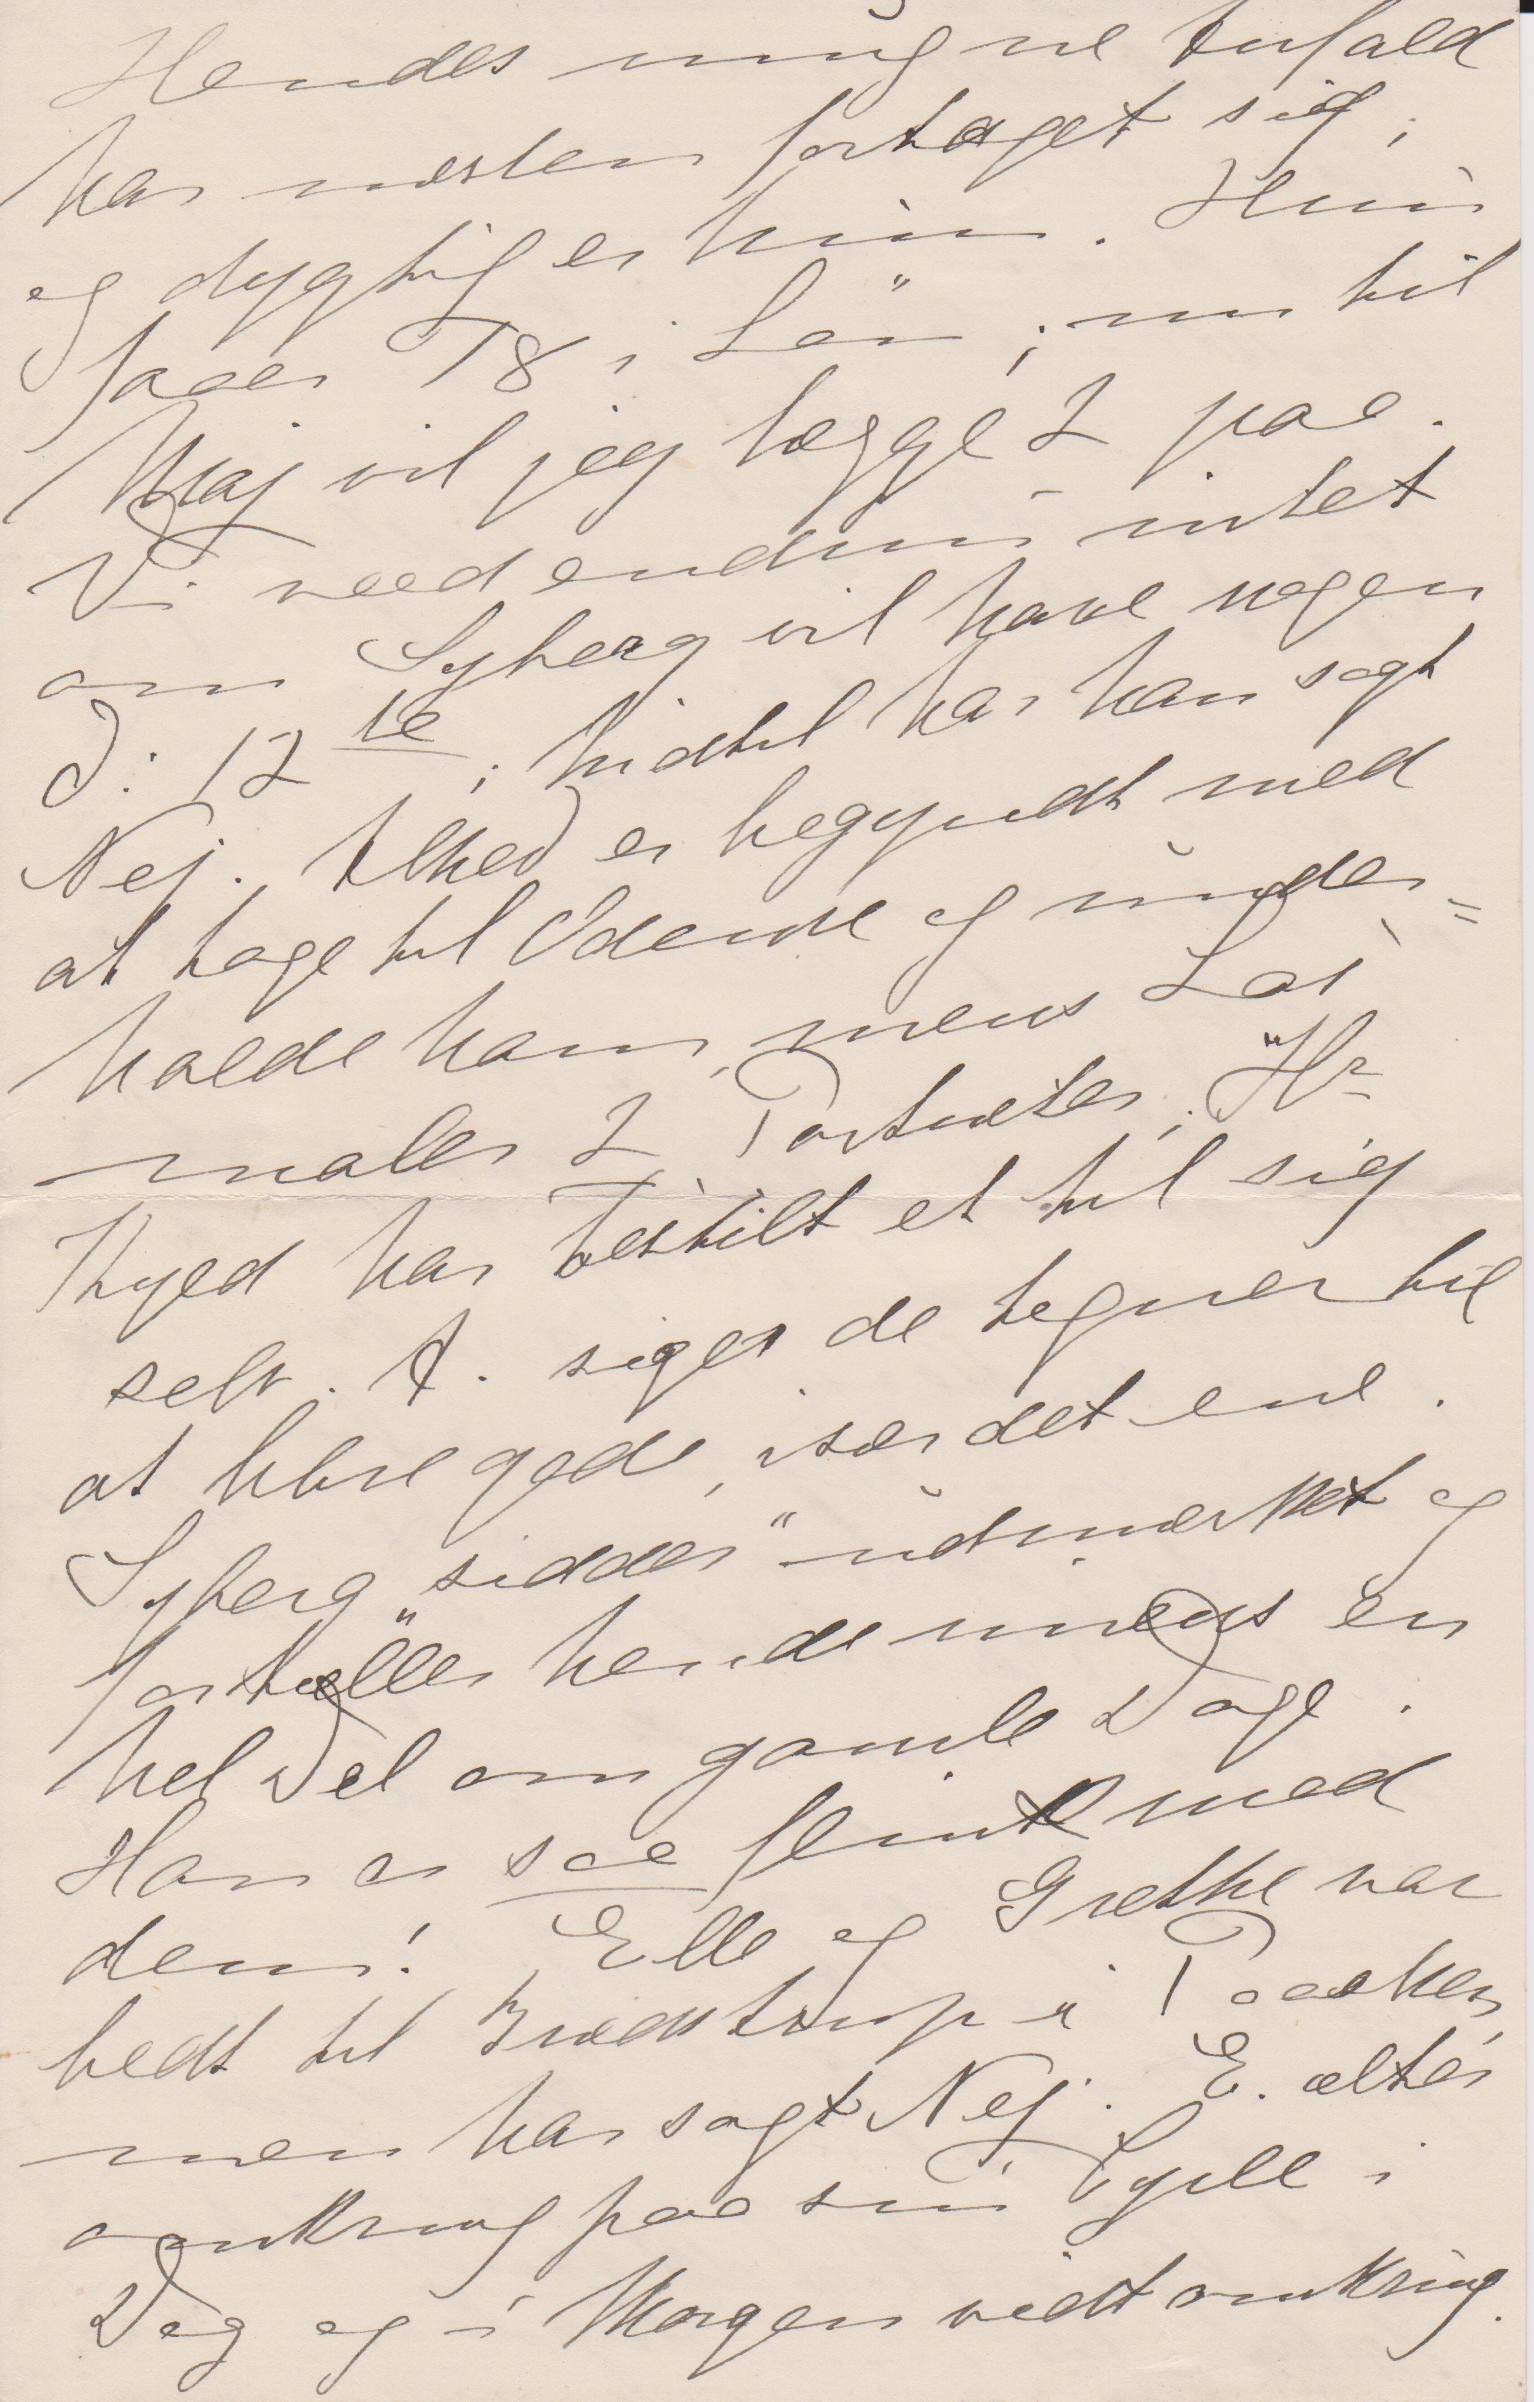 Hendes mug ne Anfald
har næsten fortaget sig,
og dygtig er hun. Hun
faaer 18 i Løn; nu til
Maj vil jeg lægge 2 paa.
Vi veed endnu intet
om Syberg vil have nogen
d: 12te, hidtil har han sagt
Nej. Alhed er begyndt med
at tage til Odense og under=
holde ham, mens Las
maler 2 Portræter, Hr
Kyed har bestilt et til sig
selv. A. siger de tegner til
at blive gode, især det ene.
Syberg „sidder" udmærket og
fortæller hende imens en
hel Del om gamle Dage.
Han er saa flink med
dem! Elle og Grethe var
bedt til Brædstrup i Paasken,
men har sagt Nej. E. alter
omkring paa sin Cycle i
Dag og i Morgen vidt omkring.